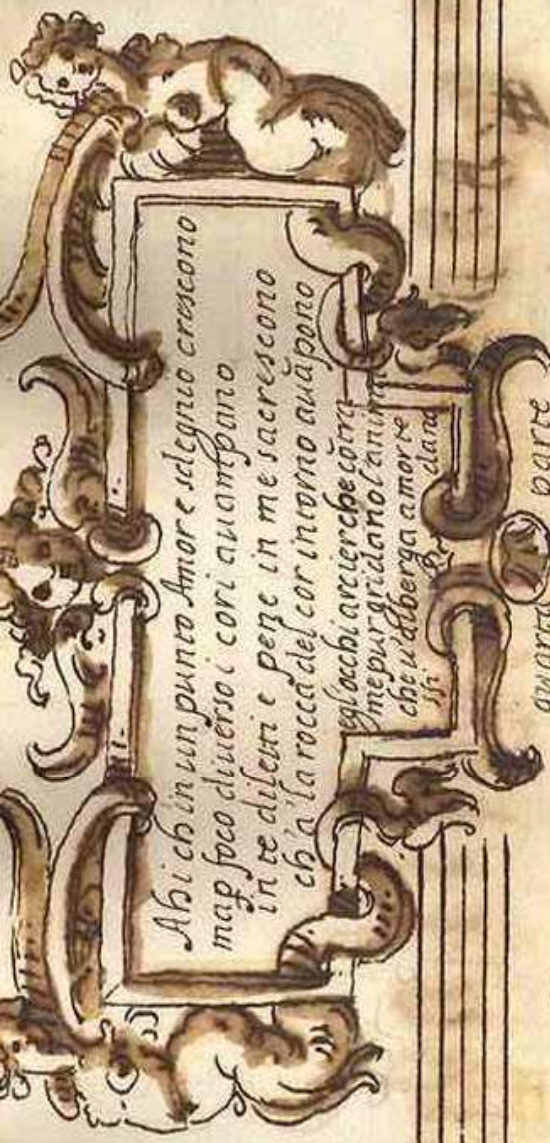 Ahi ch in un punto Amor e sdegnio crescono
map foco diverso i cori auampano
in te diletti e pene in me s'acrescono
ch'a la rocca del cor intorno auāpono
egl'occhi arcier che cōtra
me pur gridano l'anima
che u'alberga a morte
ssi dara
quarta parte